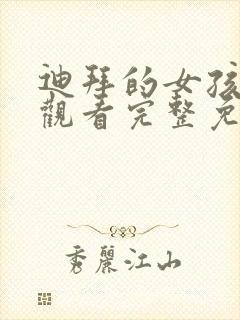 迪拜的女孩
觀看完整免
秀麗江山